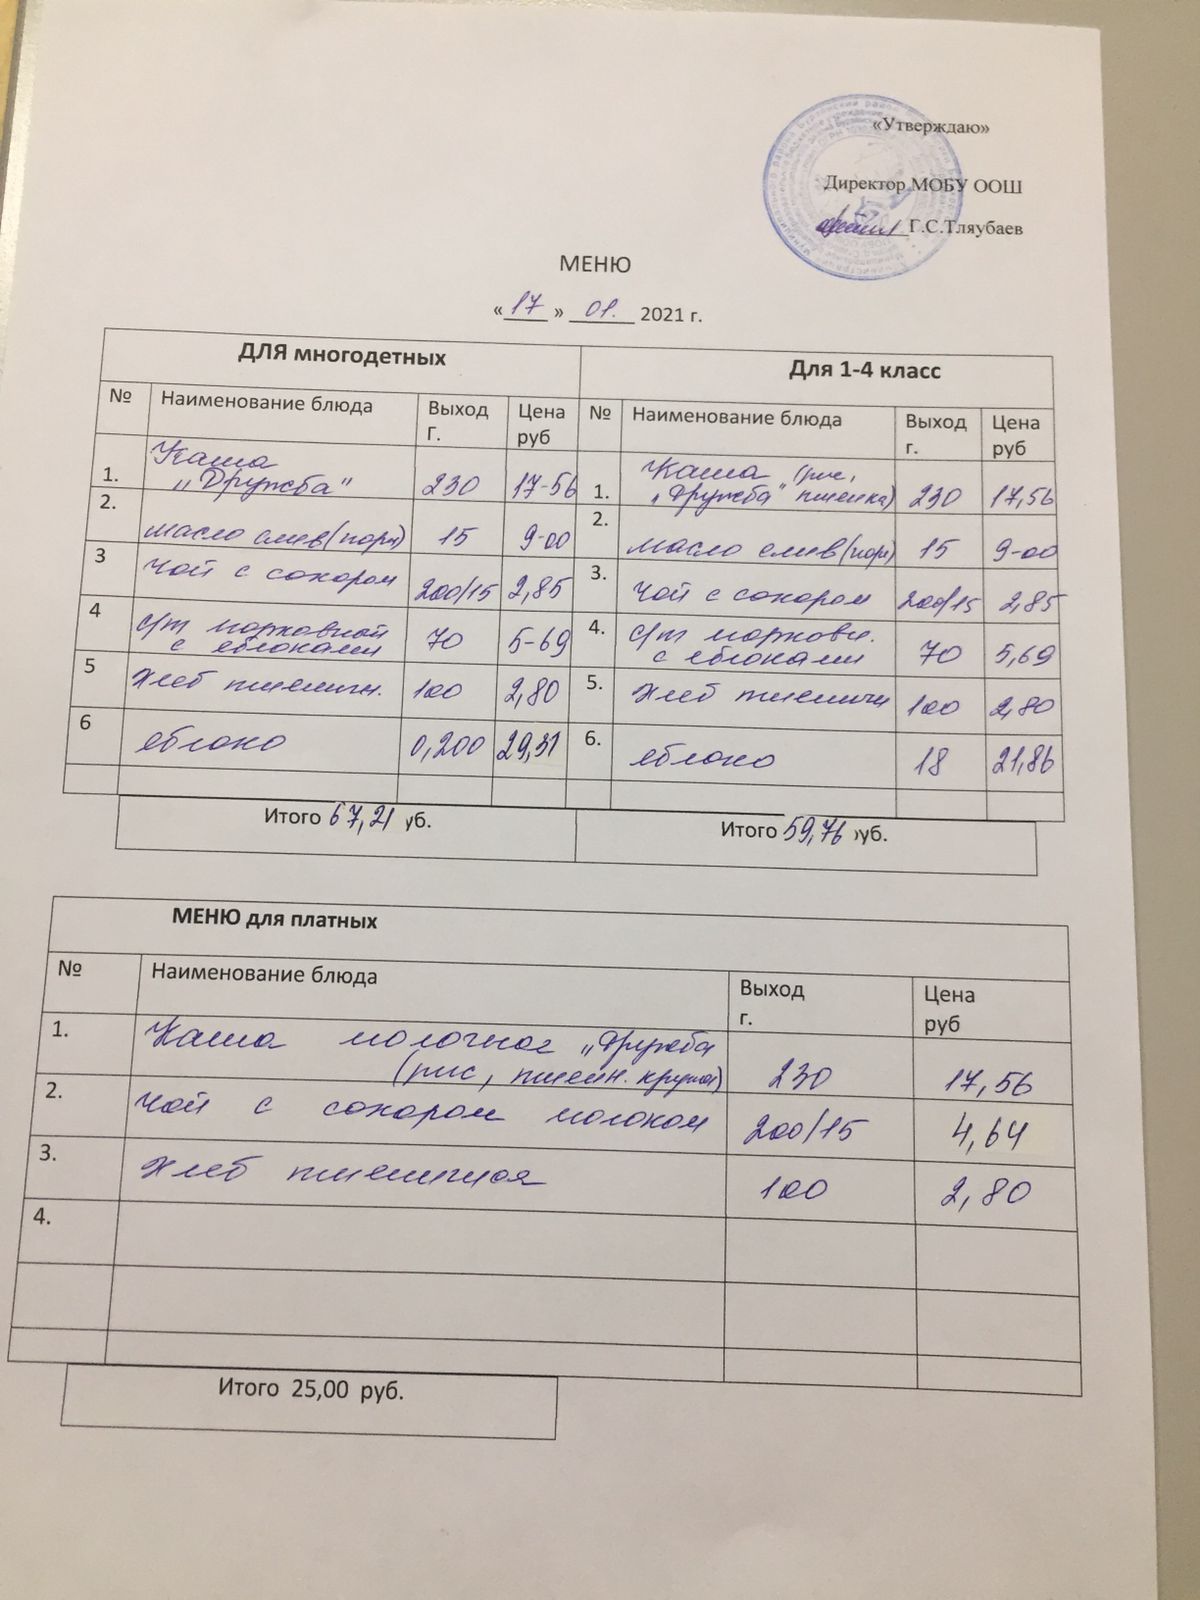 «Утверждаю»
Директор МОБУ ООШ
Г.С.Тляубаев
МЕНЮ
« 17 » 01. 2021 г.
ДЛЯ многодетных Для 1-4 класс
№ Наименование блюда Выход г. Цена руб № Наименование блюда Выход г. Цена руб
1. Каша „Дружба" 230 17-56 1. Каша (рис, „Дружба" пшенка) 230 17,56
2. масло слив(порц) 15 9-00 2. масло слив(порц) 15 9-00
3 Чай с сахаром 200/15 2,85 3. Чай с сахаром 200/15 2,85
4 с/т морковной с яблоками 70 5-69 4. с/т морковн. с яблоками 70 5,69
5 Хлеб пшеничн. 100 2,80 5. Хлеб пшеничн 100 2,80
6 яблоко 0,200 29,31 6. яблоко 18 21,86
Итого 67,21 уб. Итого 59,76 руб.
МЕНЮ для платных
№ Наименование блюда Выход г. Цена руб
1. Каша молочная „Дружба (рис, пшенн. крупа) 230 17,56
2. Чай с сахаром молоком 200/15 4,64
3. Хлеб пшеничная 100 2,80
4.
Итого 25,00 руб.